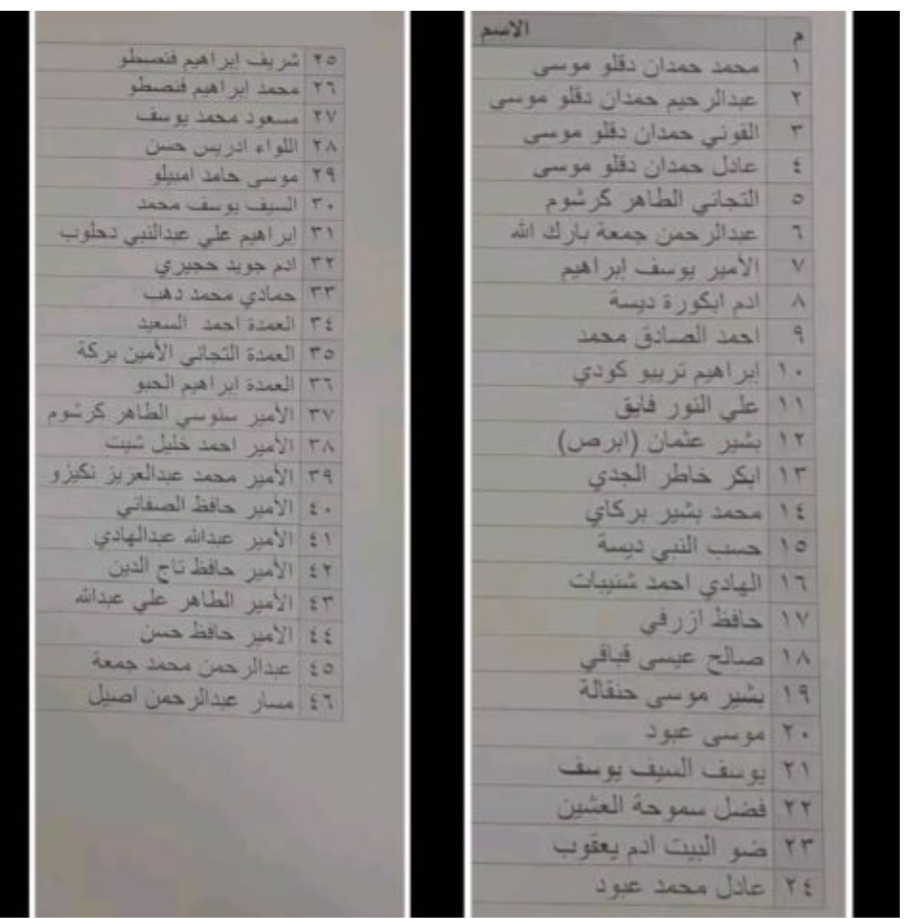 م الاسم
١ محمد حمدان دقلو موسى
٢ عبدالرحيم حمدان دقلو موسى
٣ القوني حمدان دقلو موسى
٤ عادل حمدان دقلو موسى
٥ التجاني الطاهر كرشوم
٦ عبدالرحمن جمعة بارك الله
٧ الأمير يوسف إبراهيم
٨ ادم ابكورة ديسة
٩ احمد الصادق محمد
١٠ إبراهيم تريبو كودي
١١ علي النور فايق
١٢ بشير عثمان (ابرص)
١٣ ابكر خاطر الجدي
١٤ محمد بشير بركاي
١٥ حسب النبي ديسة
١٦ الهادي احمد شنيبات
١٧ حافظ ازرفي
١٨ صالح عيسى قباقي
١٩ بشير موسى حنقالة
٢٠ موسى عبود
٢١ يوسف السيف يوسف
٢٢ فضل سموحة العشين
٢٣ ضو البيت ادم يعقوب
٢٤ عادل محمد عبود
٢٥ شريف إبراهيم فنصطو
٢٦ محمد ابراهيم فنصطو
٢٧ مسعود محمد يوسف
٢٨ اللواء ادريس حسن
٢٩ موسى حامد امبيلو
٣٠ السيف يوسف محمد
٣١ ابراهيم علي عبدالنبي دحلوب
٣٢ ادم جويد حجيري
٣٣ حمادي محمد دهب
٣٤ العمدة احمد السعيد
٣٥ العمدة التجاني الأمين بركة
٣٦ العمدة إبراهيم الحبو
٣٧ الأمير سنوسي الطاهر كرشوم
٣٨ الأمير احمد خليل شيت
٣٩ الأمير محمد عبدالعزيز نكيزو
٤٠ الأمير حافظ الصفاني
٤١ الأمير عبدالله عبدالهادي
٤٢ الأمير حافظ تاج الدين
٤٣ الأمير الطاهر علي عبدالله
٤٤ الأمير حافظ حسن
٤٥ عبدالرحمن محمد جمعة
٤٦ مسار عبدالرحمن اصيل